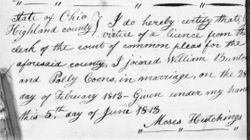 State of Ohio } I do hereby certify that, by
Highland county } virtue of a licence from the
clerk of the court of common pleas for the
aforesaid county, I joined William Burton
and Polly Coons, in marriage, on the 28
day of February 1813 – Given under my hand
this 5th day of June 1813
Moses Hutchings